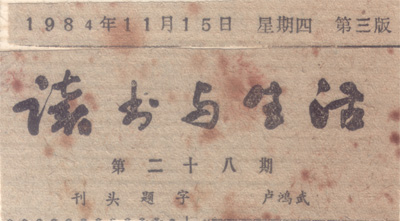 1984年11月15日 星期四 第三版
读书与生活
第二十八期
刊头题字 卢鸿武